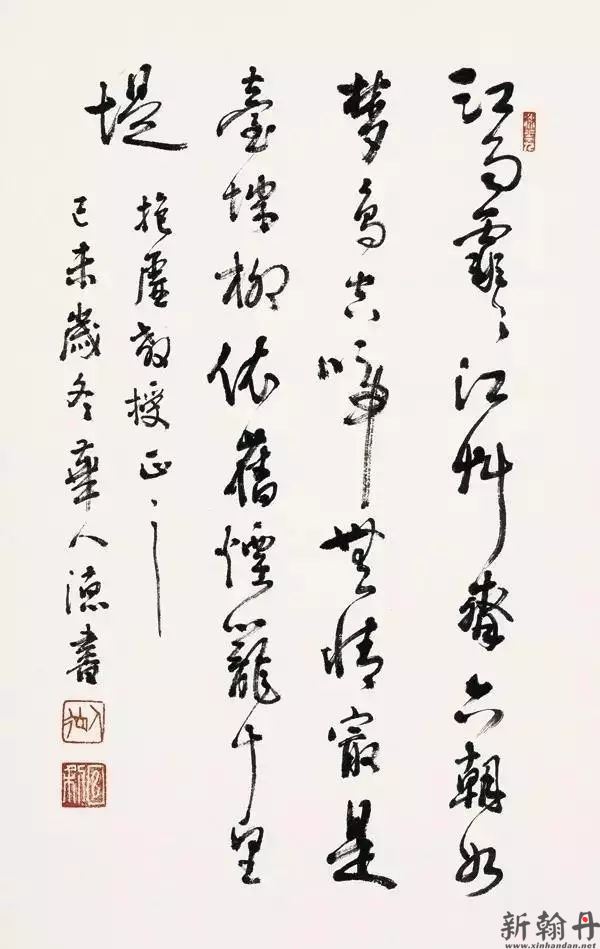 江雨霏〻江艸齊六朝如
夢鳥空啼無情最是
臺城柳依舊煙籠十里
堤
抱廬教授正之
己未歲冬華人德書
新翰丹
www.xinhandan.net